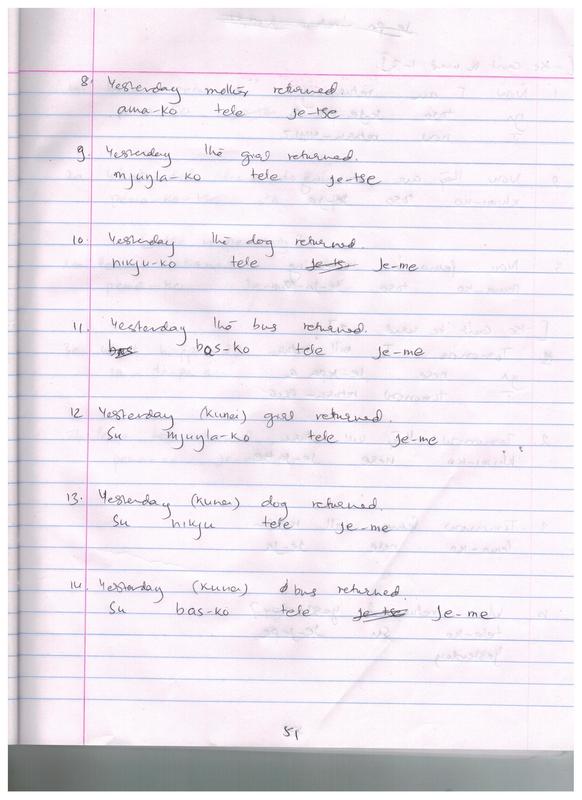 8. Yesterday mother returned.
ama-ko tele je-tse
9. Yesterday the girl returned.
mjuyla-ko tele je-tse
10. Yesterday the dog returned.
nikju-ko tele je-ts je-me
11. Yesterday the bus returned.
bas bas-ko tele je-me
12 Yesterday (kunei) girl returned.
Su mjuyla-ko tele je-me
13. Yesterday (kunei) dog returned.
Su nikju tele je-me
14. Yesterday (kunei) bus returned.
Su bas-ko tele je-tse je-me
51